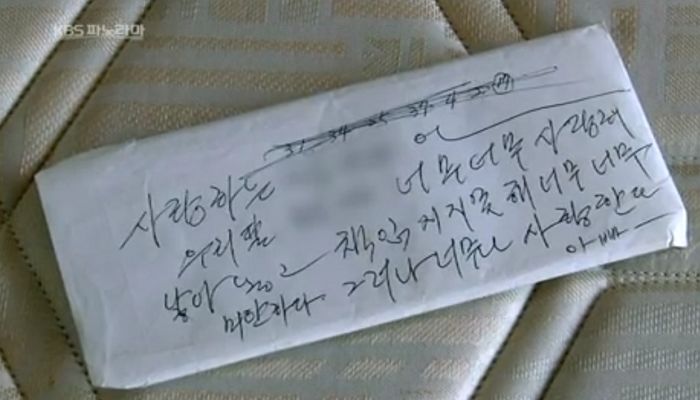 KBS 파노라마
사랑하는
우리딸 너무너무 사랑해
낳아 놓고 책임 지지못해 너무너무
미안하다. 그러나 너무나 사랑한다
아빠